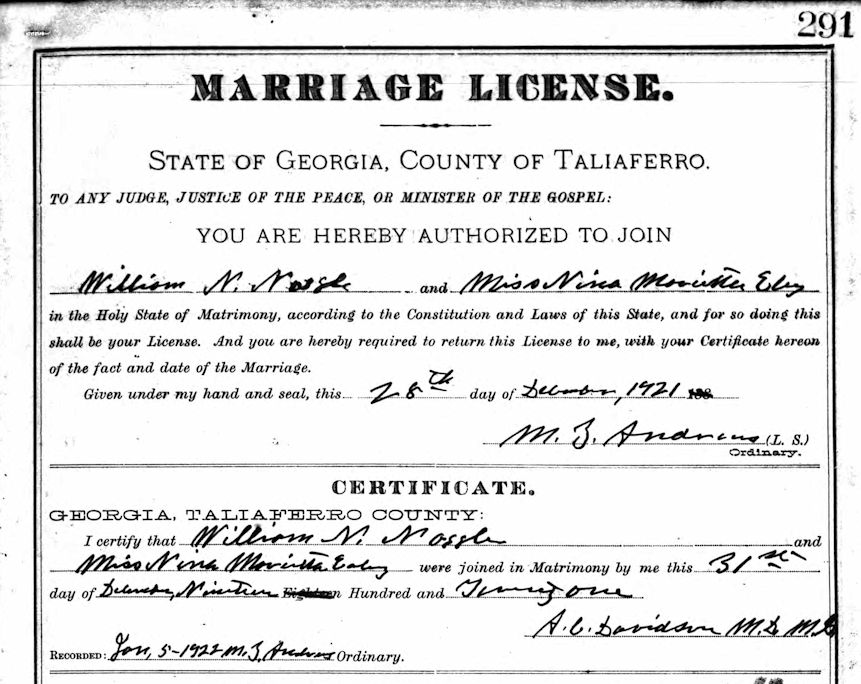 291
MARRIAGE LICENSE.
STATE OF GEORGIA, COUNTY OF TALIAFERRO.
TO ANY JUDGE, JUSTICE OF THE PEACE, OR MINISTER OF THE GOSPEL:
YOU ARE HEREBY AUTHORIZED TO JOIN
William N. Noggle and Miss Nina Eley
in the Holy State of Matrimony, according to the Constitution and Laws of this State, and for so doing this
shall be your License. And you are hereby required to return this License to me, with your Certificate hereon
of the fact and date of the Marriage.
Given under my hand and seal, this 28th day of December, 1921
M. Z. Andrews (L. S.)
Ordinary.
CERTIFICATE.
GEORGIA, TALIAFERRO COUNTY:
I certify that William N. Noggle and
Miss Nina Eley were joined in Matrimony by me this 31st
day of December, Nineteen Hundred and Twenty one
A. C. Davidson M.D.
RECORDED: Jan, 5-1922 M. Z. Andrews Ordinary.